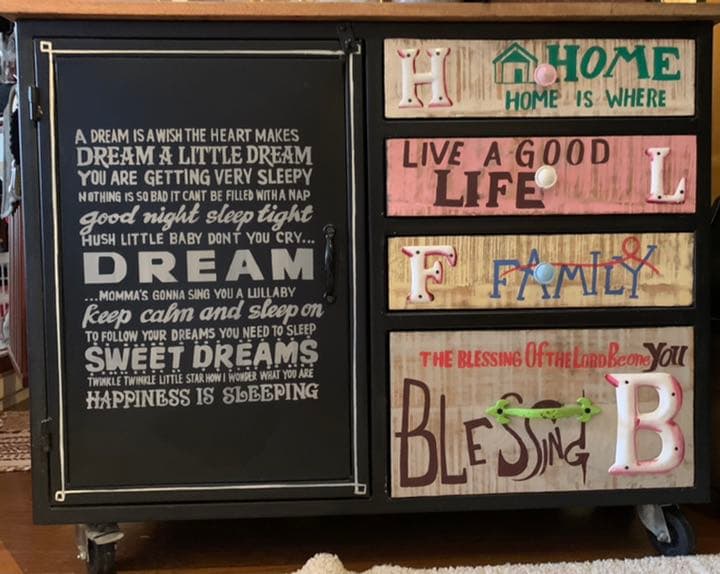 A DREAM IS A WISH THE HEART MAKES
DREAM A LITTLE DREAM
YOU ARE GETTING VERY SLEEPY
NOTHING IS SO BAD IT CANT BE FILLED WITH A NAP
good night sleep tight
HUSH LITTLE BABY DONT YOU CRY...
DREAM
...MOMMA'S GONNA SING YOU A LULLABY
keep calm and sleep on
TO FOLLOW YOUR DREAMS YOU NEED TO SLEEP
SWEET DREAMS
TWINKLE TWINKLE LITTLE STAR HOW I WONDER WHAT YOU ARE
HAPPINESS IS SLEEPING
H HOME
HOME IS WHERE
LIVE A GOOD
LIFE L
F FAMILY
THE BLESSING Of THE LORD Become YOU
BLESSING B